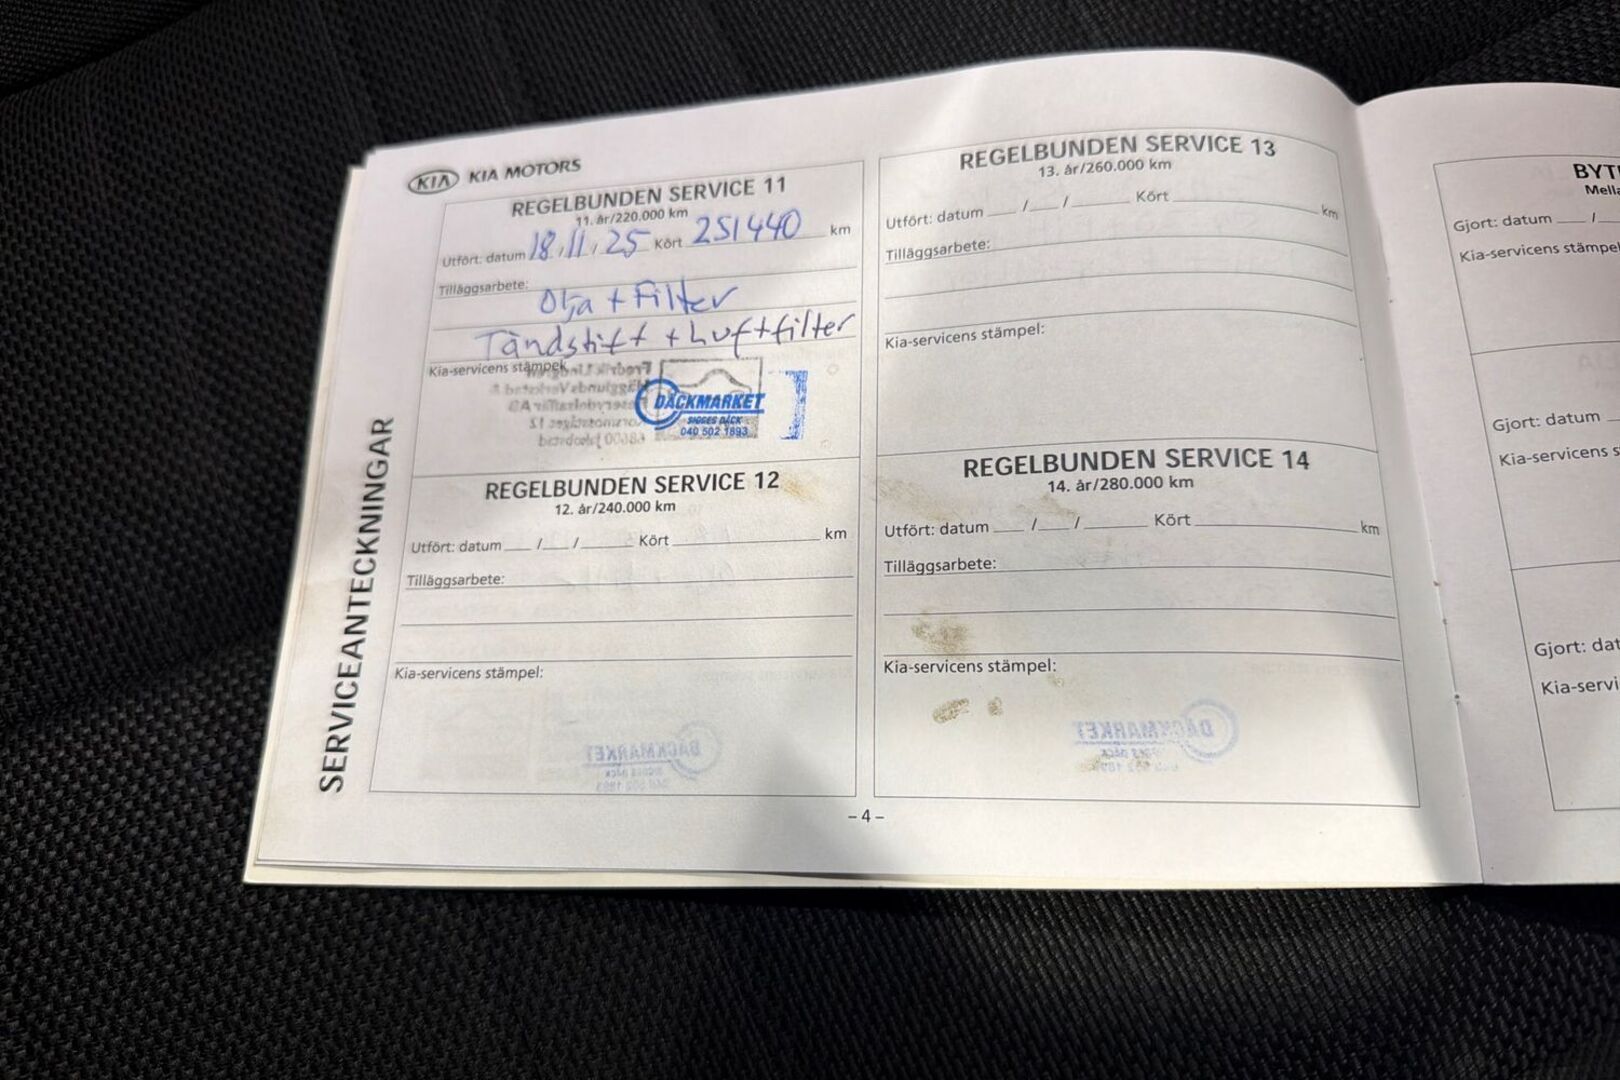 KIA KIA MOTORS
SERVICEANTECKNINGAR
REGELBUNDEN SERVICE 11
11. år/220.000 km
Utfört: datum 18/11/25 Kört 251440 km
Tilläggsarbete:
Olja + Filter
Tändstift + Luftfilter
Kia-servicens stämpel:
DÄCKMARKET
SIGGES DÄCK
040 502 1893
REGELBUNDEN SERVICE 12
12. år/240.000 km
Utfört: datum ___/___/______ Kört ______ km
Tilläggsarbete:
Kia-servicens stämpel:
REGELBUNDEN SERVICE 13
13. år/260.000 km
Utfört: datum ___/___/______ Kört ______ km
Tilläggsarbete:
Kia-servicens stämpel:
REGELBUNDEN SERVICE 14
14. år/280.000 km
Utfört: datum ___/___/______ Kört ______ km
Tilläggsarbete:
Kia-servicens stämpel:
– 4 –
BYT
Mella
Gjort: datum ___/
Kia-servicens stämpel
Gjort: datum
Kia-servicens s
Gjort: dat
Kia-servi